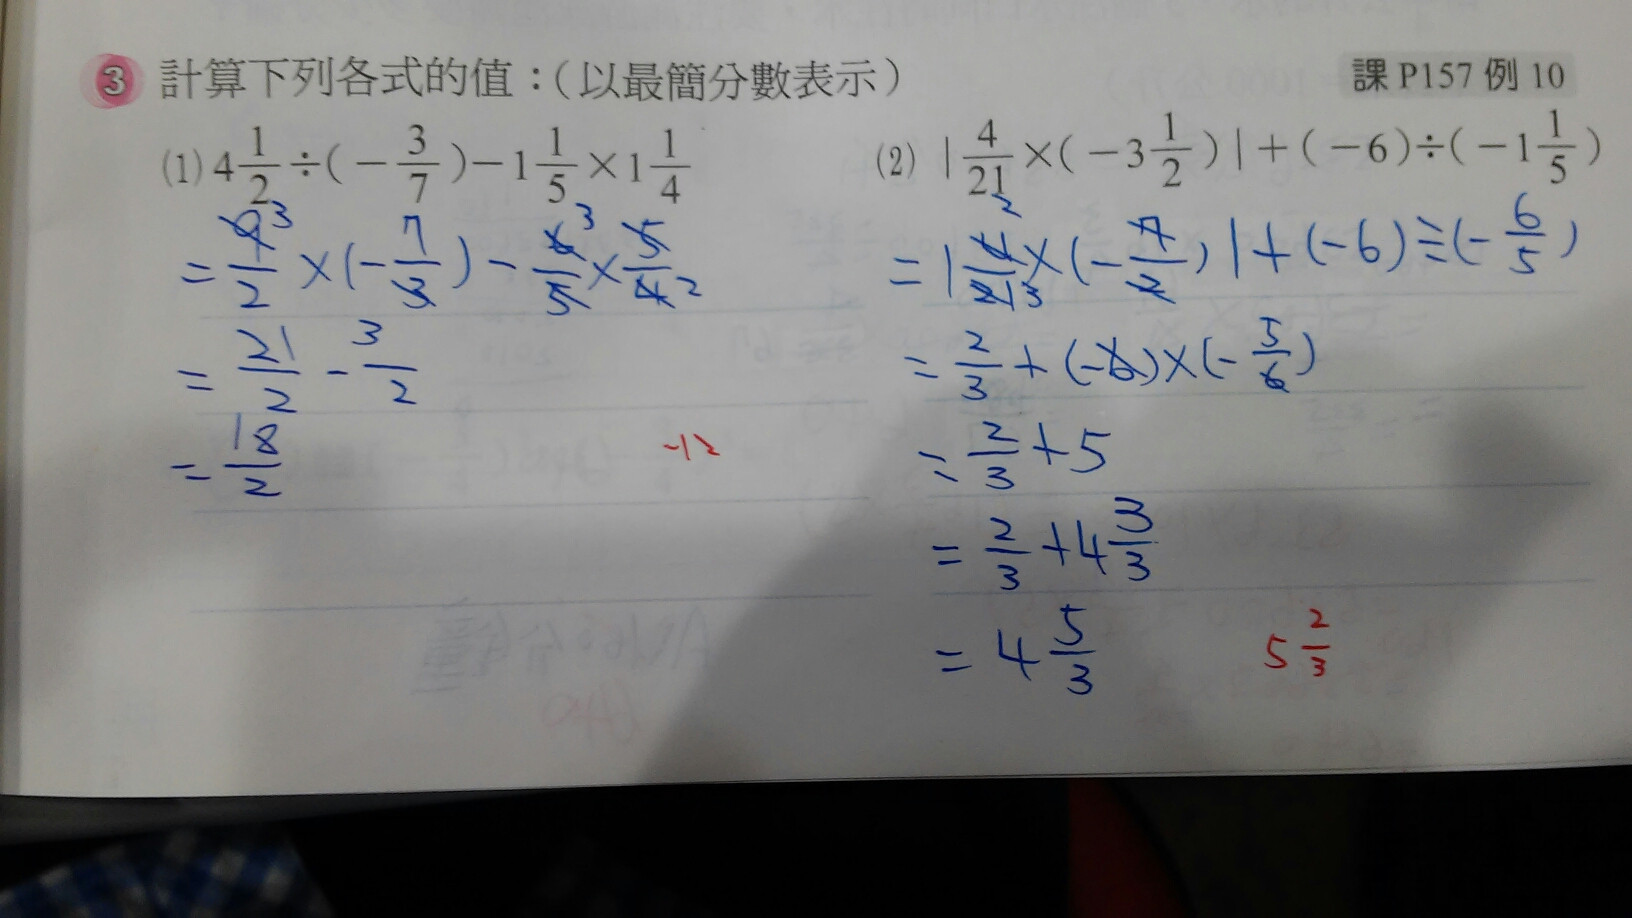 3 計算下列各式的值:(以最簡分數表示) 課 P157 例 10
(1) 4 1/2 ÷ ( - 3/7 ) - 1 1/5 × 1 1/4
= 9/2 3 × (- 7/3 ) - 6/5 3 × 5/4 2
= 21/2 - 3/2
= 18/2
-12
(2) | 4/21 × ( - 3 1/2 ) | + ( - 6 ) ÷ ( - 1 1/5 )
= | 4/21 2 3 × (- 7/2 ) | + (-6) ÷ (- 6/5 )
= 2/3 + (-6) × (- 5/6 )
= 2/3 + 5
= 2/3 + 4 3/3
= 4 5/3
5 2/3